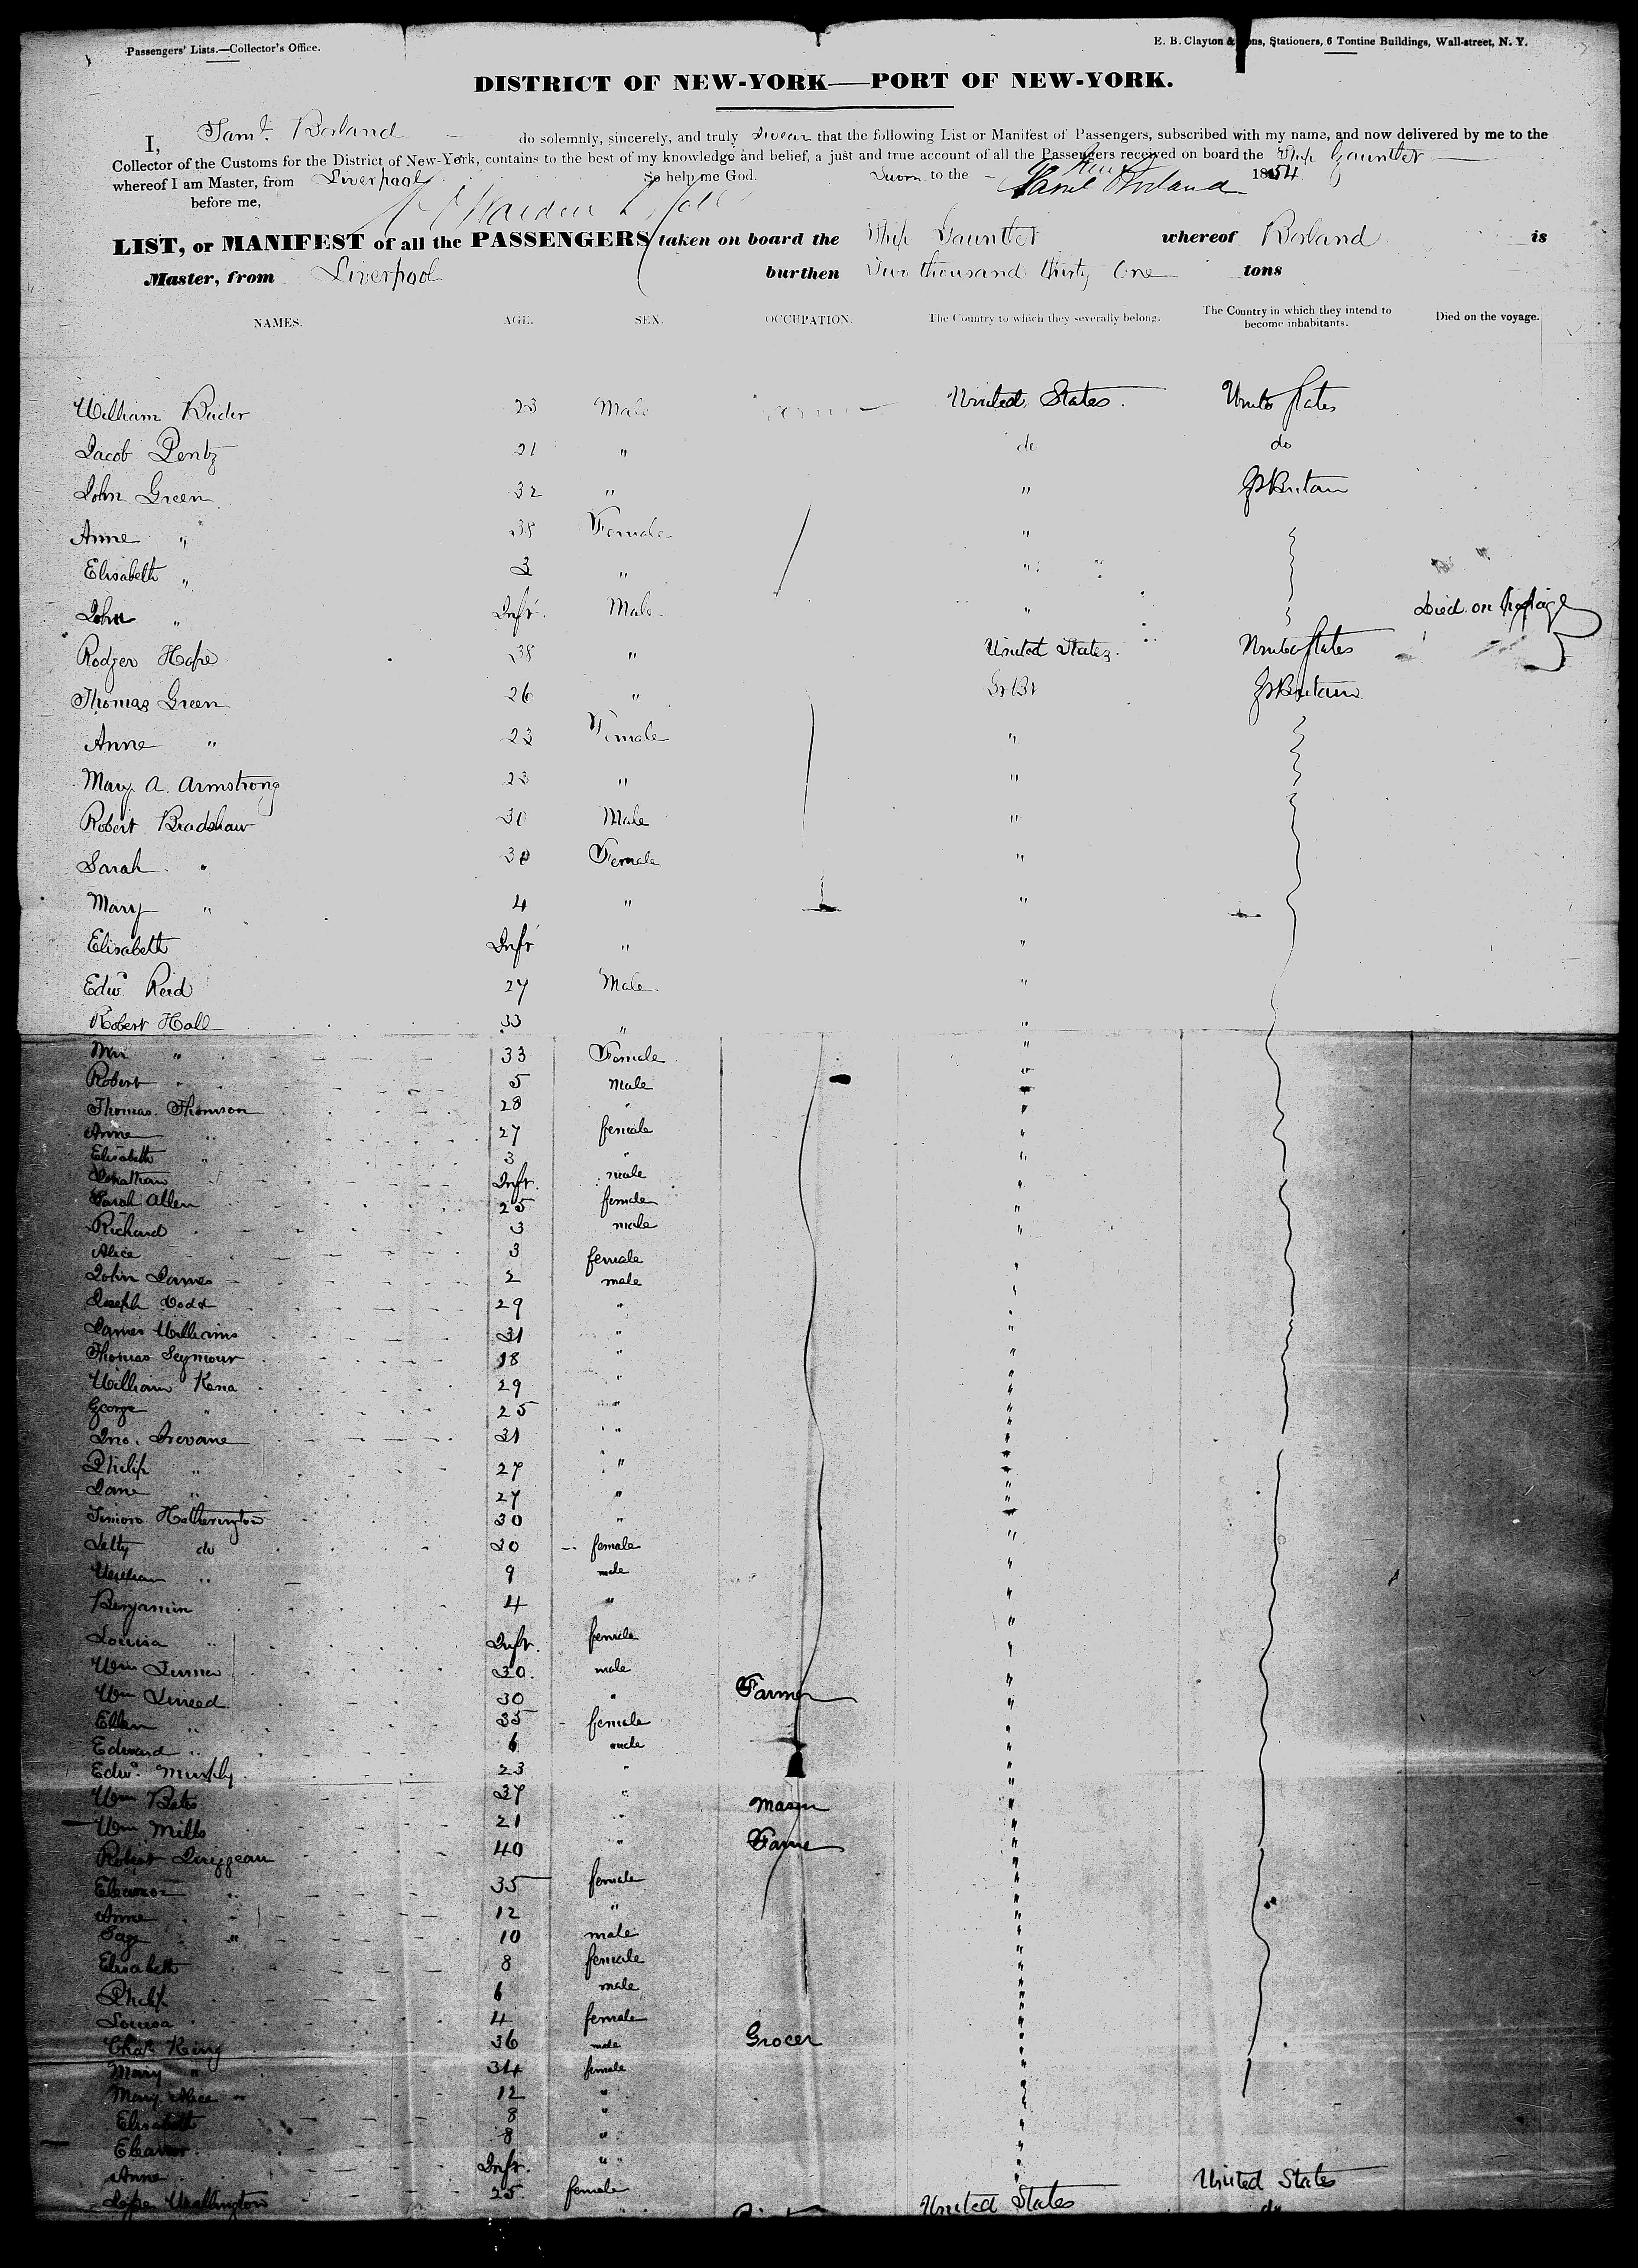 Passengers' Lists.—Collector's Office.
E. B. Clayton & Sons, Stationers, 6 Tontine Buildings, Wall-street, N. Y.
DISTRICT OF NEW-YORK—PORT OF NEW-YORK.
I, Saml. Borland do solemnly, sincerely, and truly swear that the following List or Manifest of Passengers, subscribed with my name, and now delivered by me to the
Collector of the Customs for the District of New-York, contains to the best of my knowledge and belief, a just and true account of all the Passengers received on board the Ship Gauntlet
whereof I am Master, from Liverpool So help me God. Sworn to the 1854
before me, Saml Borland
LIST, or MANIFEST of all the PASSENGERS taken on board the Ship Gauntlet whereof Borland is
Master, from Liverpool burthen Two thousand thirty One tons
NAMES. AGE. SEX. OCCUPATION. The Country to which they severally belong. The Country in which they intend to become inhabitants. Died on the voyage.
William 23 Male United States. United States
Jacob Pentz 21 " do do
John Green 32 " " Gt Britain
Anne " 38 Female "
Elisabeth " 3 " "
John " Inft. Male " Died on
Rodger Hope 38 " United States. United States
Thomas Green 26 " Gt Bt Gt Britain
Anne " 23 Female "
Mary A. Armstrong 23 " "
Robert Bradshaw 30 Male "
Sarah " 30 Female "
Mary " 4 " "
Elisabeth Inft " "
Edwd Reid 27 Male "
Robert Hall 33 " "
" 33 Female "
Robert " 5 male "
Thomas Thomson 28 " "
Anne " 27 female "
Elisabeth " 3 " "
Inft. male "
Sarah Allen 25 female "
Richard 3 male "
Alice 3 female "
John James 2 male "
Joseph 29 " "
James Williams 31 " "
Thomas Seymour 18 " "
William 29 " "
George " 25 " "
Jno. 31 " "
Philip " 27 " "
Jane " 27 " "
Hetherington 30 " "
Letty do 30 female "
William " 9 male "
Benjamin 4 " "
Louisa " Inft. female "
Wm 30. male "
Wm 30 " Farmer "
Ellen " 35 female "
Edward " 6 male "
Edwd. Murphy 23 " "
Wm Bates 37 " Mason "
Wm Mills 21 " "
Robert 40 " Farmer "
Eleanor " 35 female "
Anne " 12 " "
" 10 male "
Elisabeth 8 female "
Philip 6 male "
Louisa 4 female "
Chas King 36 male Grocer "
Mary " 34 female "
Mary Alice " 12 " "
Elisabeth 8 " "
Eleanor 8 " "
Anne Inft. " "
25 female United States United States
do